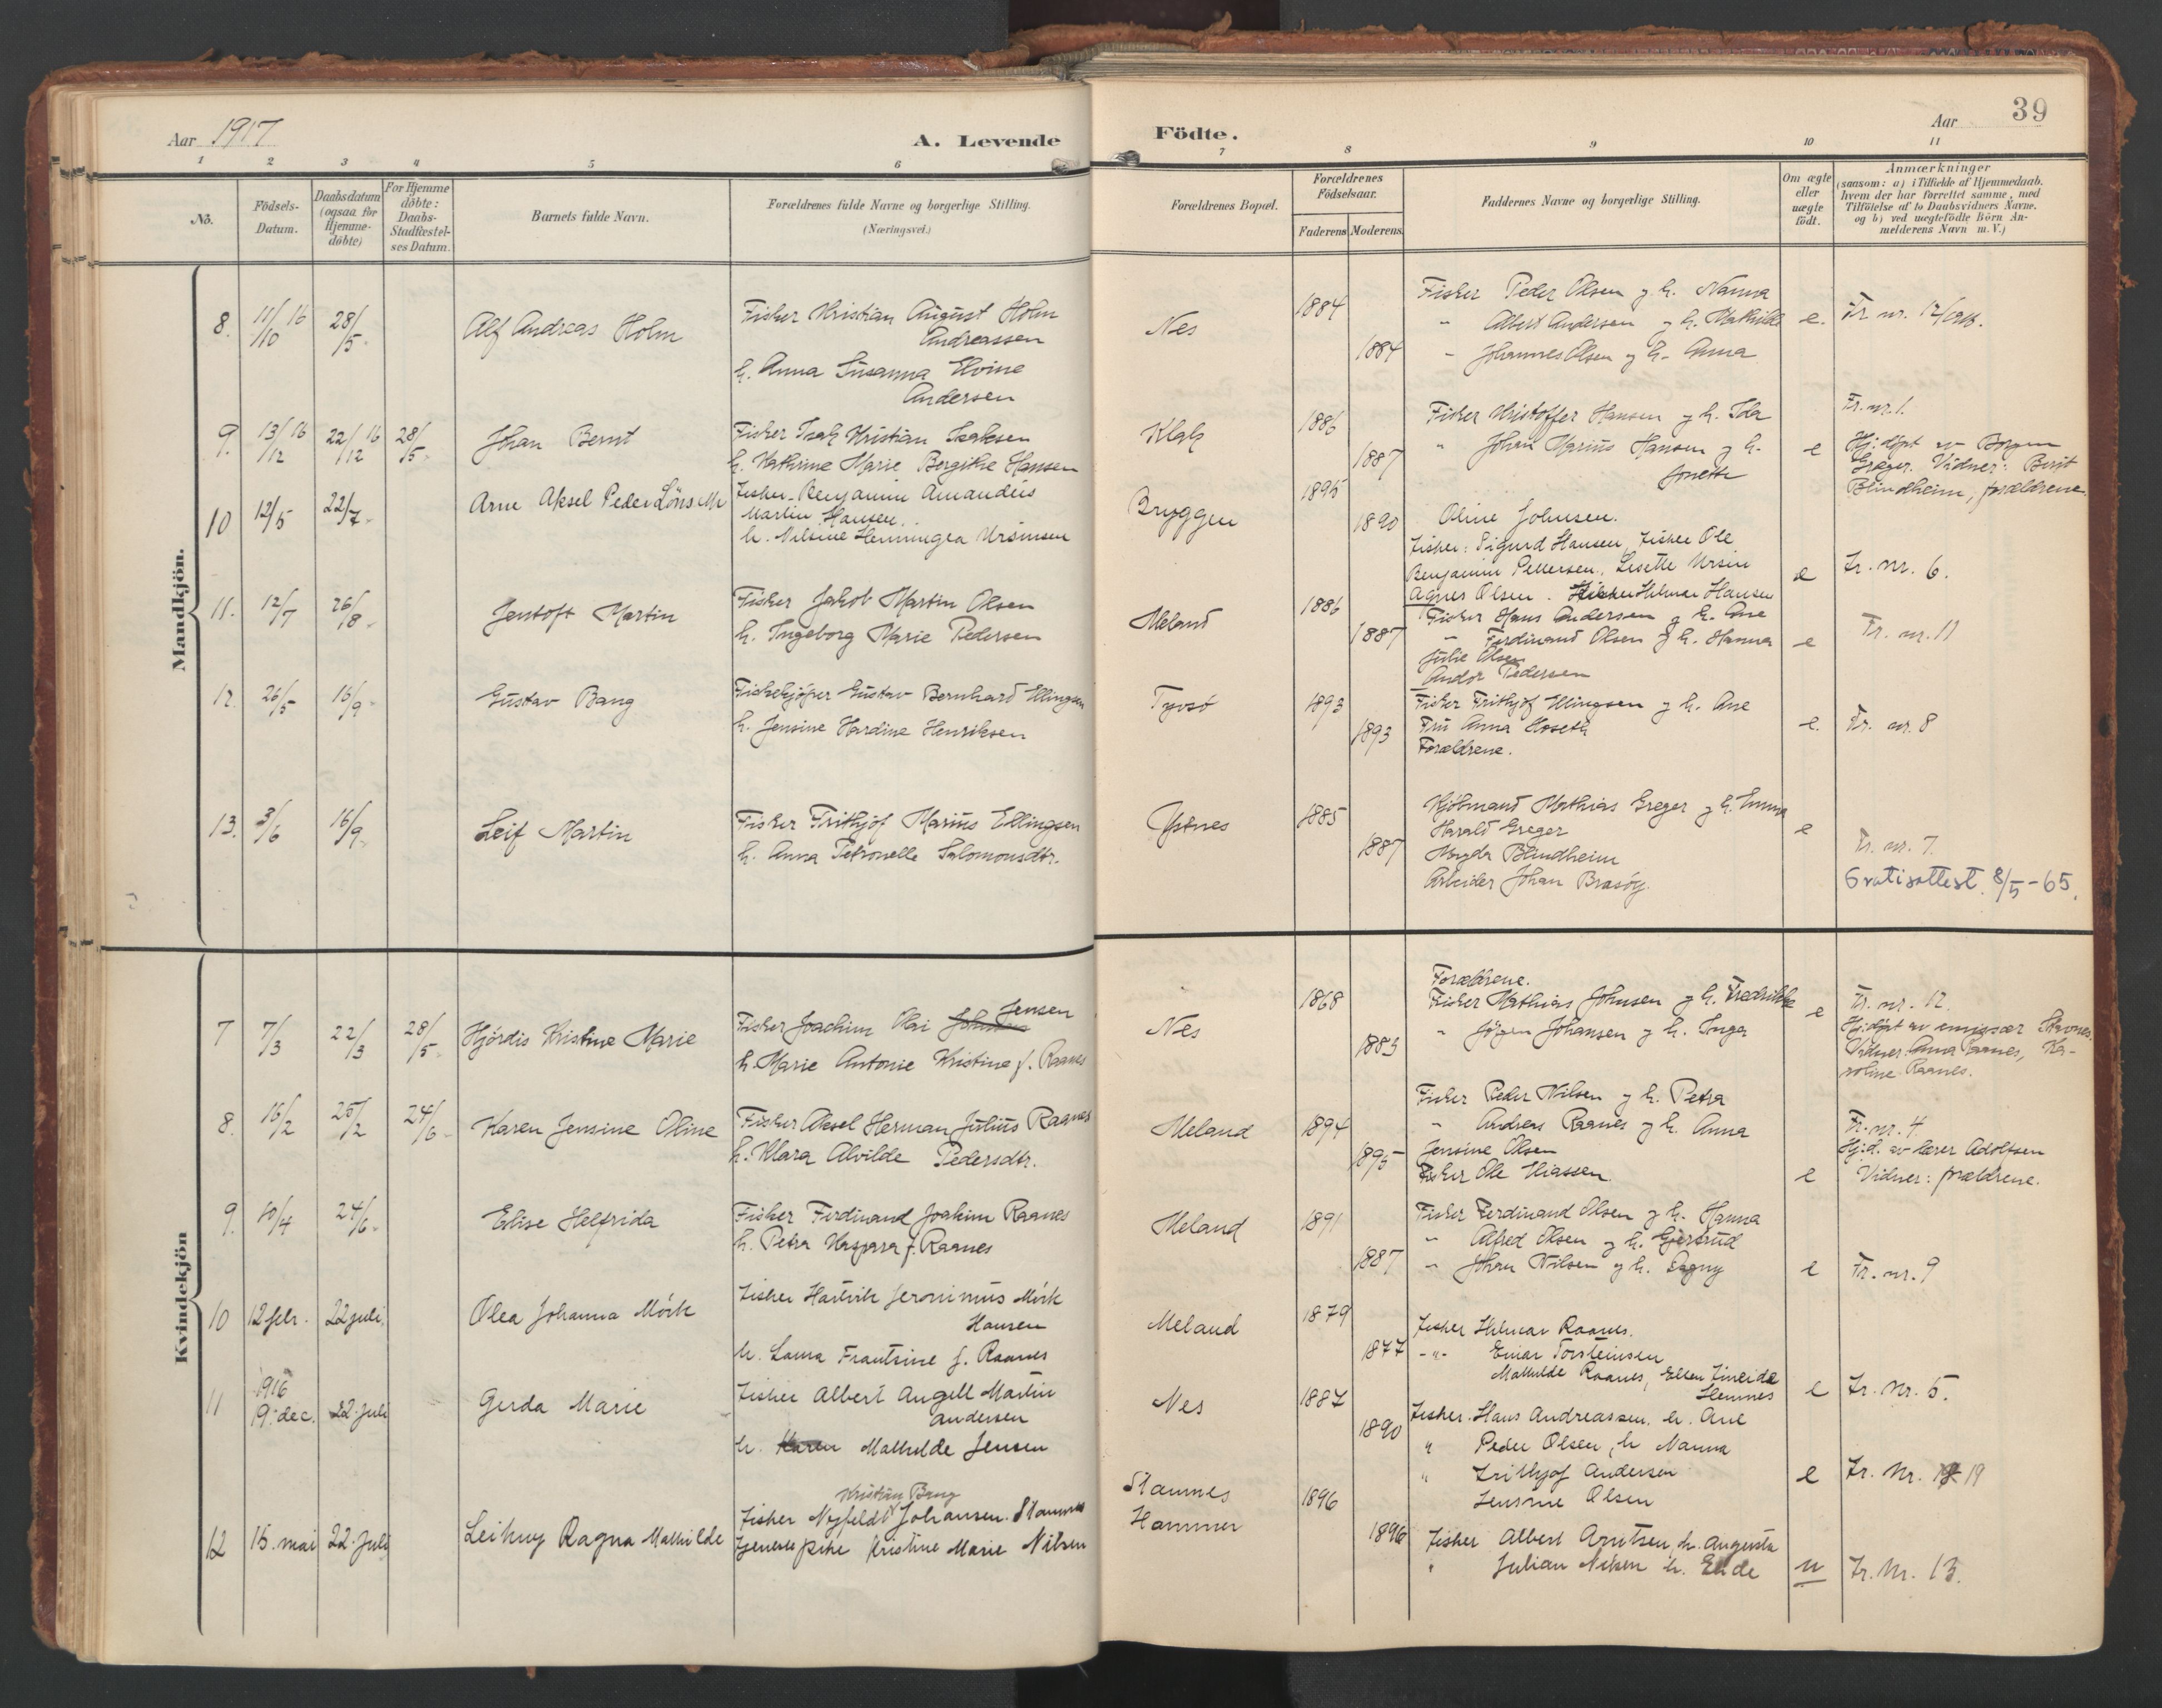 Aar 1917
A. Levende
Födte.
Aar
39
1 2 3 4 5 6 7 8 9 10 11
Nö.
Födsels-
Datum.
Daabsdatum
(ogsaa for
Hjemme-
döbte)
For Hjemme
döbte:
Daabs-
Stadfæstel-
ses Datum.
Barnets fulde Navn.
Forældrenes fulde Navne og borgerlige Stilling.
(Næringsvei.)
Forældrenes Bopæl.
Forældrenes
Födselsaar.
Faderens
Moderens
Faddernes Navne og borgerlige Stilling.
Om ægte
eller
uægte
födt.
Anmærkninger
(saasom: a) i Tilfælde af Hjemmedaab.
hvem der har forrettet samme, med
Tilföielse af to Daabsvidners Navne.
og b) ved uægtefödte Börn An-
melderens Navn m.V.)
Mandkjön.
8. 11/10 16 28/5. Alf Andreas Holm
Fisker Kristian August Holm
Andreassen
h. Anna Susanna
Andersen
Nes 1884 1884
Fisker Peder Olsen og h. Nanna
" Albert Andersen og h. Mathilde
" Johannes Olsen og h. Anna
e.
9. 13/12 16 22/12 16 28/5. Johan Bernt
Fisker Isak Kristian Isaksen
h. Kathrine Marie Bergithe Hansen
Klak 1886 1887
Fisker Kristoffer Hansen og h. Ida
" Johan Marius Hansen og h.
Jonette
e
Fr. nr. 1.
Hj: döpt av Borgny
Greger. Vidner: Berit
Blindheim, forældrene.
10 12/5 22/7. Arne Aksel Peder
Fisker Benjamin Amandus
Martin Hansen.
h. Nilsine Henningea Ursinsen
Bryggen 1895 1890
Oline Johnsen.
Fisker: Sigurd Hansen, Fisker Ole
Benjamin Pettersen, Lisette Ursin
Agnes Olsen. Hilmar Hansen
e
Fr. nr. 6.
11. 12/7 26/8. Jentoft Martin
Fisker Jakob Martin Olsen
h. Ingeborg Marie Pedersen
Meland 1886 1887
Fisker Hans Andersen og h. Ane
" Ferdinand Olsen og h. Hanna
Julie Olsen
Andor Pedersen
e
Fr. nr. 11
12. 26/5 16/9. Gustav Bang
Fiskekjöper Gustav Bernhard Ellingsen
h. Jensine Hardine Henriksen
Tyvsö 1893 1893
Fisker Frithjof Ellingsen og h. Ane
Fru Anna Hoseth
Forældrene.
e.
Fr. nr. 8
13. 3/6 16/9. Leif Martin
Fisker Frithjof Marius Ellingsen
h. Anna Petronelle Salomonsdtr.
Ystnes 1885 1887
Kjöbmand Mathias Greger og h. Emma
Harald Greger
Magda Blindheim
Arbeider Johan Brasöy.
e
Fr. nr. 7.
Gratisattest. 8/5-65.
Kvindekjön
7 7/3 22/3 28/5. Hjördis Kristine Marie
Jensen
Fisker Joachim Olai
h. Marie Antonie Kristine f. Raanes
Nes 1868 1883
Forældrene.
Fisker Mathias Johnsen og h. Fredrikke
" Jörgen Johansen og h. Inga
e
Fr. nr. 12.
Hj: döpt av
Vidner: Anna Raanes, Ka-
roline Raanes.
8. 16/2 25/2 24/6. Karen Jensine Oline
Fisker Aksel Herman Julius Raanes
h. Klara Alvilde Pedersdtr.
Meland 1894 1895
Fisker Peder Nilsen og h. Petra
" Andreas Raanes og h. Anna
Jensine Olsen
Fisker Ole
e
Fr. nr. 4.
Hj: d. av lærer Adolfsen
Vidner: forældrene.
9. 10/4 24/6. Elise Helfrida
Fisker Ferdinand Joakim Raanes
h. Petra Kaspara f. Raanes
Meland 1891 1887
Fisker Ferdinand Olsen og h. Hanna
" Alfred Olsen og h. Gjertrud
" Johan Nilsen og h. Dagny
e
Fr. nr. 9
10 12 febr. 22 juli. Olea Johanna Mörk
Fisker Hartvik Jeronimus Mörk
Hansen
h. Laura Frantsine f. Raanes
Meland 1879 1877
Fisker Hilmar Raanes.
-"- Einar Torsteinsen
Mathilde Raanes, Ellen
Hemnes
e
Fr. nr. 5.
1916
11 19. dec. 22. juli Gerda Marie
Fisker Albert Angell Martin
Andersen
h. Karen Mathilde Jensen
Nes 1887 1890
Fisker Hans Andreassen, h. Ane
" Peder Olsen, h Nanna
" Frithjof Andersen
Jensine Olsen
e
Fr. nr. 19
12 15. mai 22. juli Leikny Ragna Mathilde
Kristian Bang
Fisker Nyfeldt Johansen. Stamnes
Tjenestepike Kristine Marie Nilsen
Stamnes
Hammer
1896 1896
Fisker Albert Arntsen, h. Augusta
" Julian Nilsen h.
u
Fr. Nr. 13.